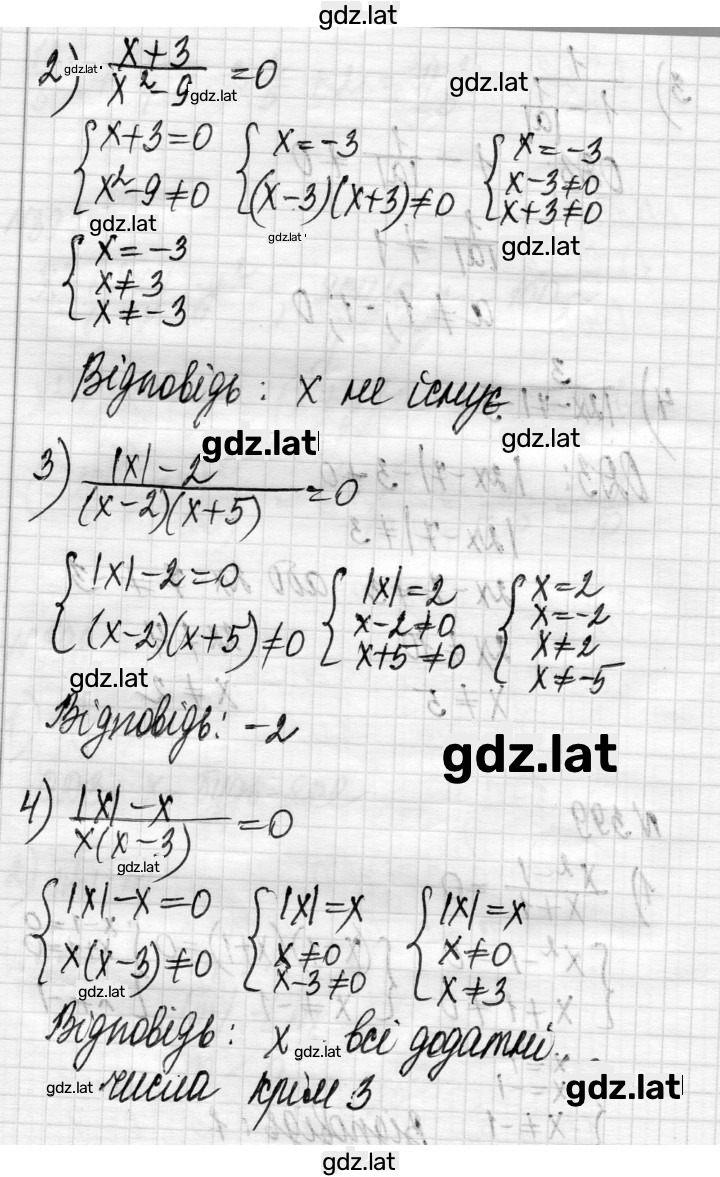 gdz.lat
2) (x+3)/(x²-9) = 0
gdz.lat
gdz.lat
gdz.lat
{ x+3=0
x²-9≠0
{ x=-3
(x-3)(x+3)≠0
{ x=-3
x-3≠0
x+3≠0
gdz.lat
gdz.lat
gdz.lat
{ x=-3
x≠3
x≠-3
Відповідь: x не існує.
gdz.lat
gdz.lat
3) (|x|-2)/((x-2)(x+5)) = 0
{ |x|-2=0
(x-2)(x+5)≠0
{ |x|=2
x-2≠0
x+5≠0
{ x=2
x=-2
x≠2
x≠-5
gdz.lat
Відповідь: -2
gdz.lat
4) (|x|-x)/(x(x-3)) = 0
gdz.lat
{ |x|-x=0
x(x-3)≠0
{ |x|=x
x≠0
x-3≠0
{ |x|=x
x≠0
x≠3
gdz.lat
Відповідь: x всі додатні
gdz.lat
gdz.lat числа крім 3
gdz.lat
gdz.lat